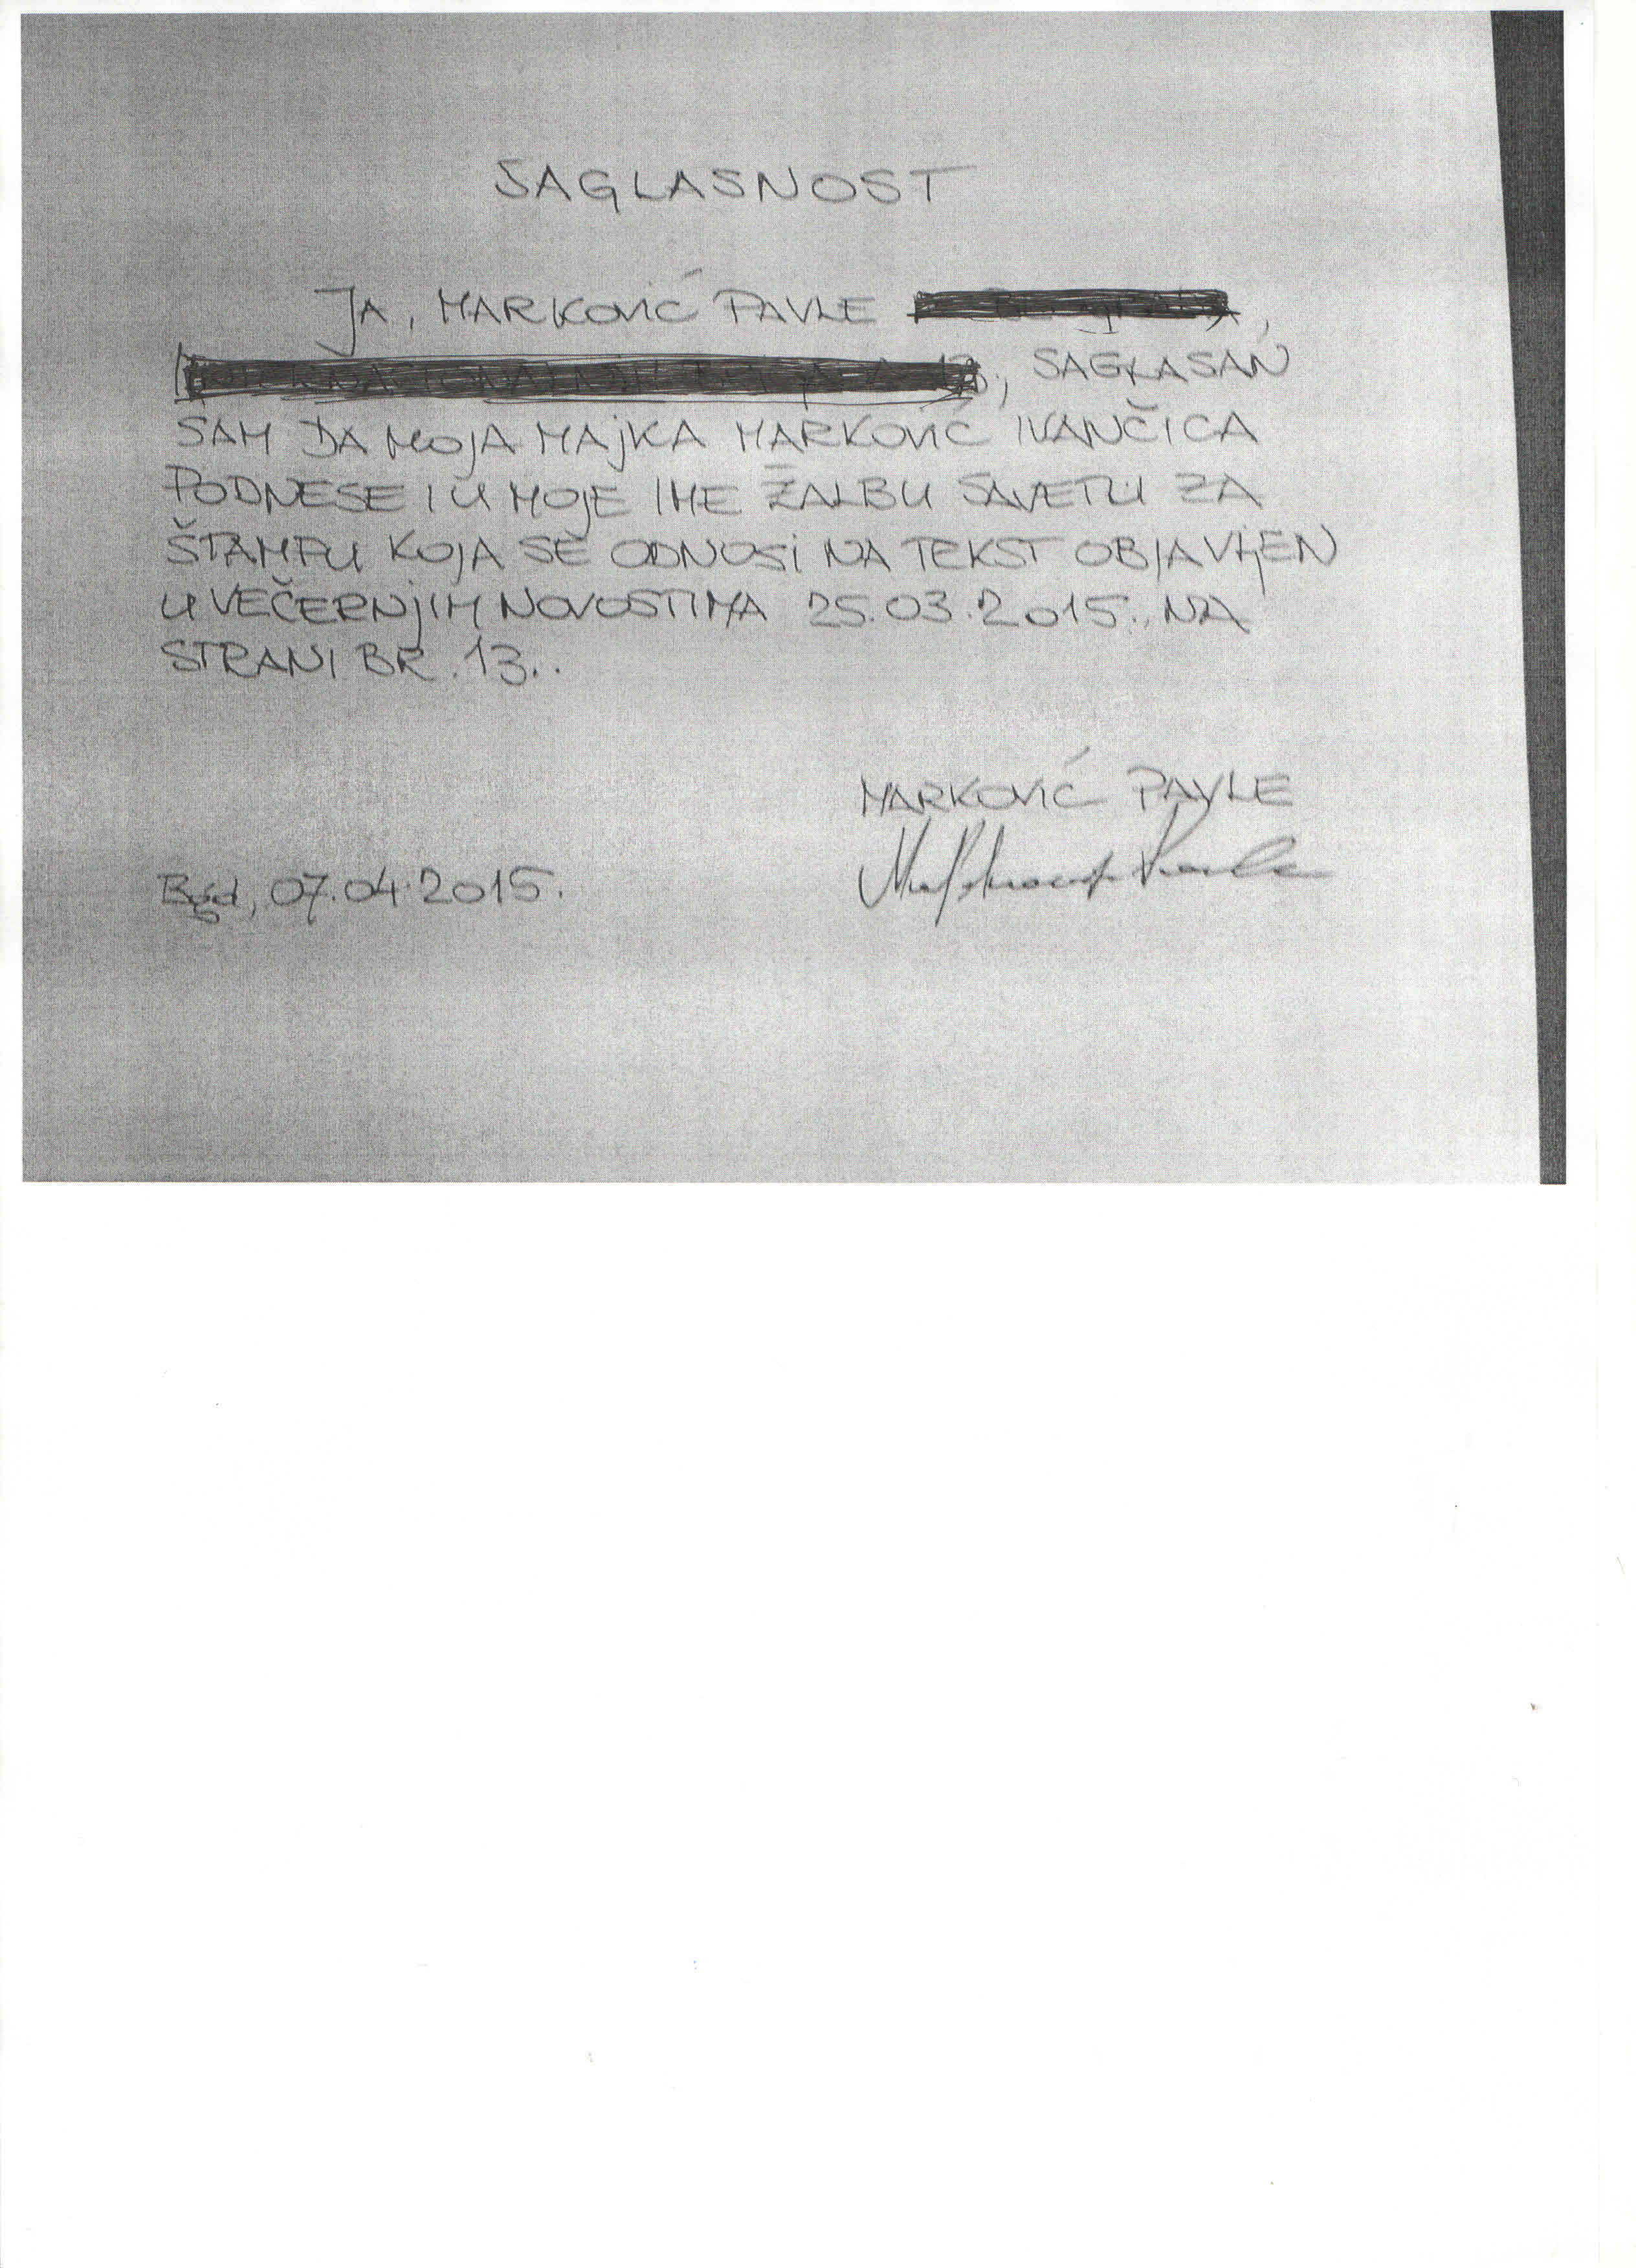 SAGLASNOST
JA, MARKOVIĆ PAVLE ,
, SAGLASAN
SAM DA MOJA MAJKA MARKOVIĆ IVANČICA
PODNESE I U MOJE IME ŽALBU SAVETU ZA
ŠTAMPU KOJA SE ODNOSI NA TEKST OBJAVLJEN
U VEČERNJIM NOVOSTIMA 25.03.2015., NA
STRANI BR. 13..
MARKOVIĆ PAVLE
Bgd, 07.04.2015.